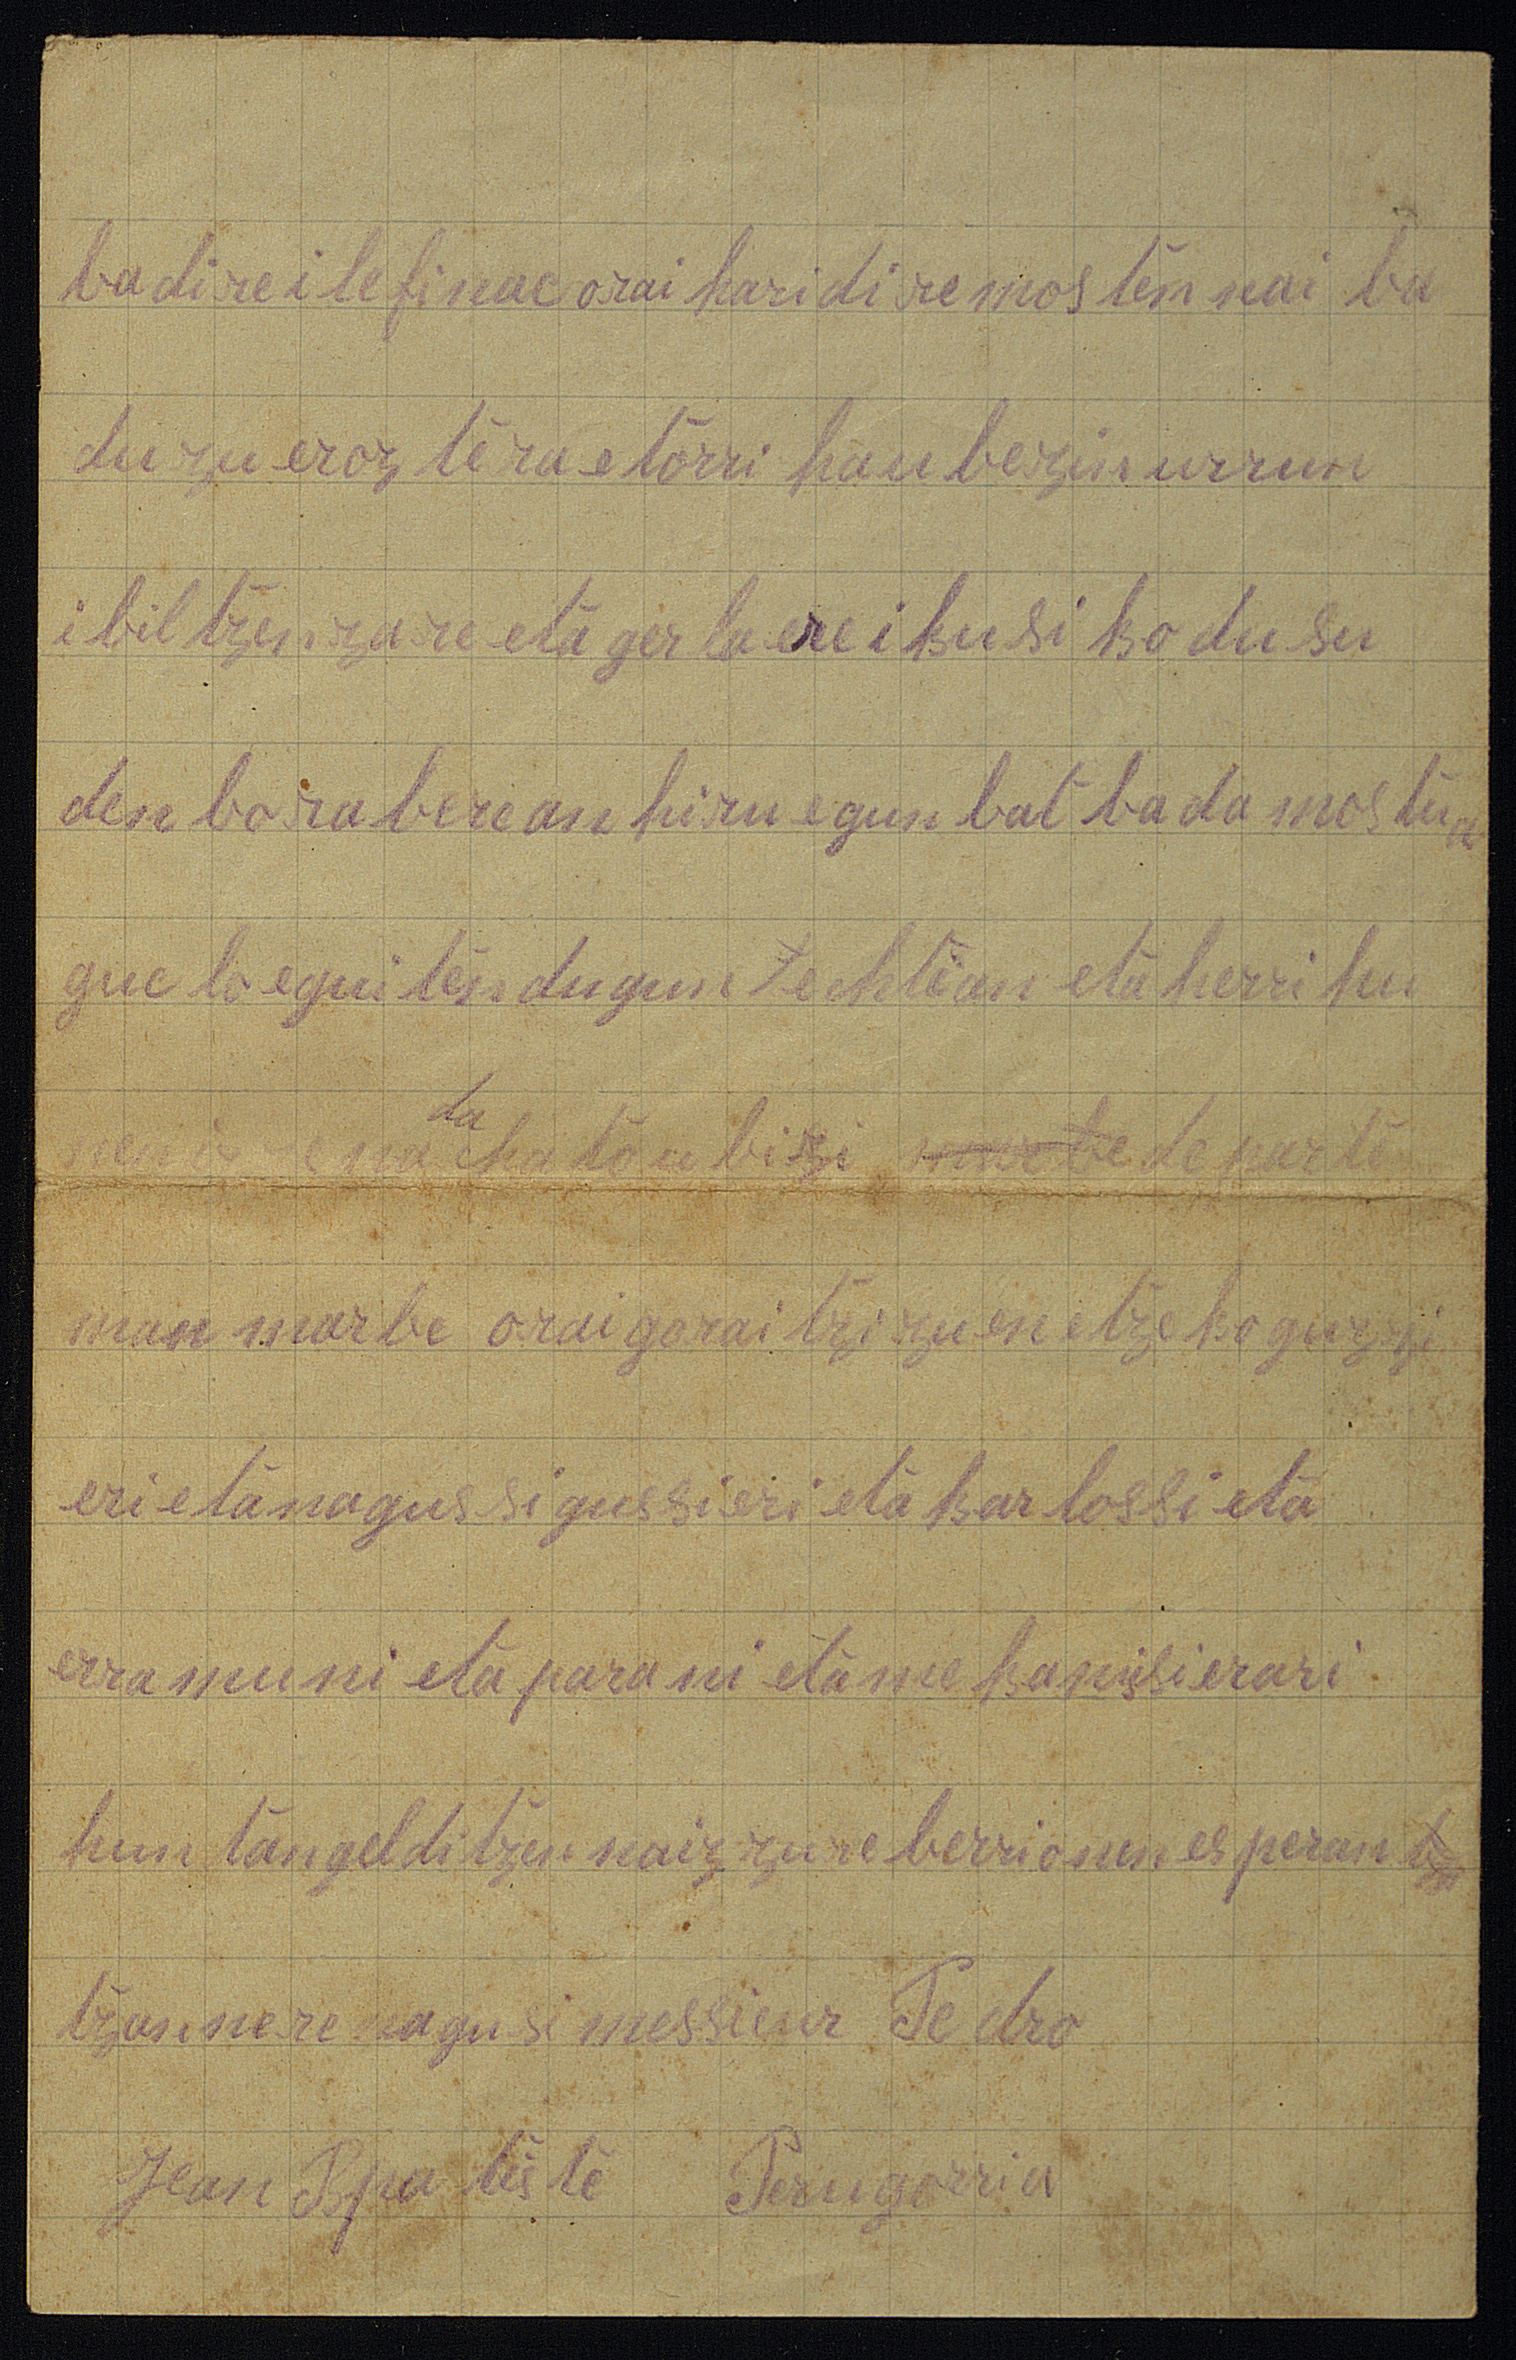 badire ile finac orai hari dire mosten nai ba
duzu eroztera etorri hau bezin urrun
ibiltzen zare eta gerla ere ikusiko dusu
denbora berean hiru egun bat bada mostua
gue lo eguiten dugun techtean eta herri hu
da chatoubisi de parte
man marbe orai goraitzi zuen etzeko guzzi
eri eta nagussi gussieri eta karlossi eta
erramuni eta parani eta mekanissierari
huntan gelditzen naiz zure berri onen esperan
tzan nere nagusi messieur Pedro
Jean Bpatiste Perugorria